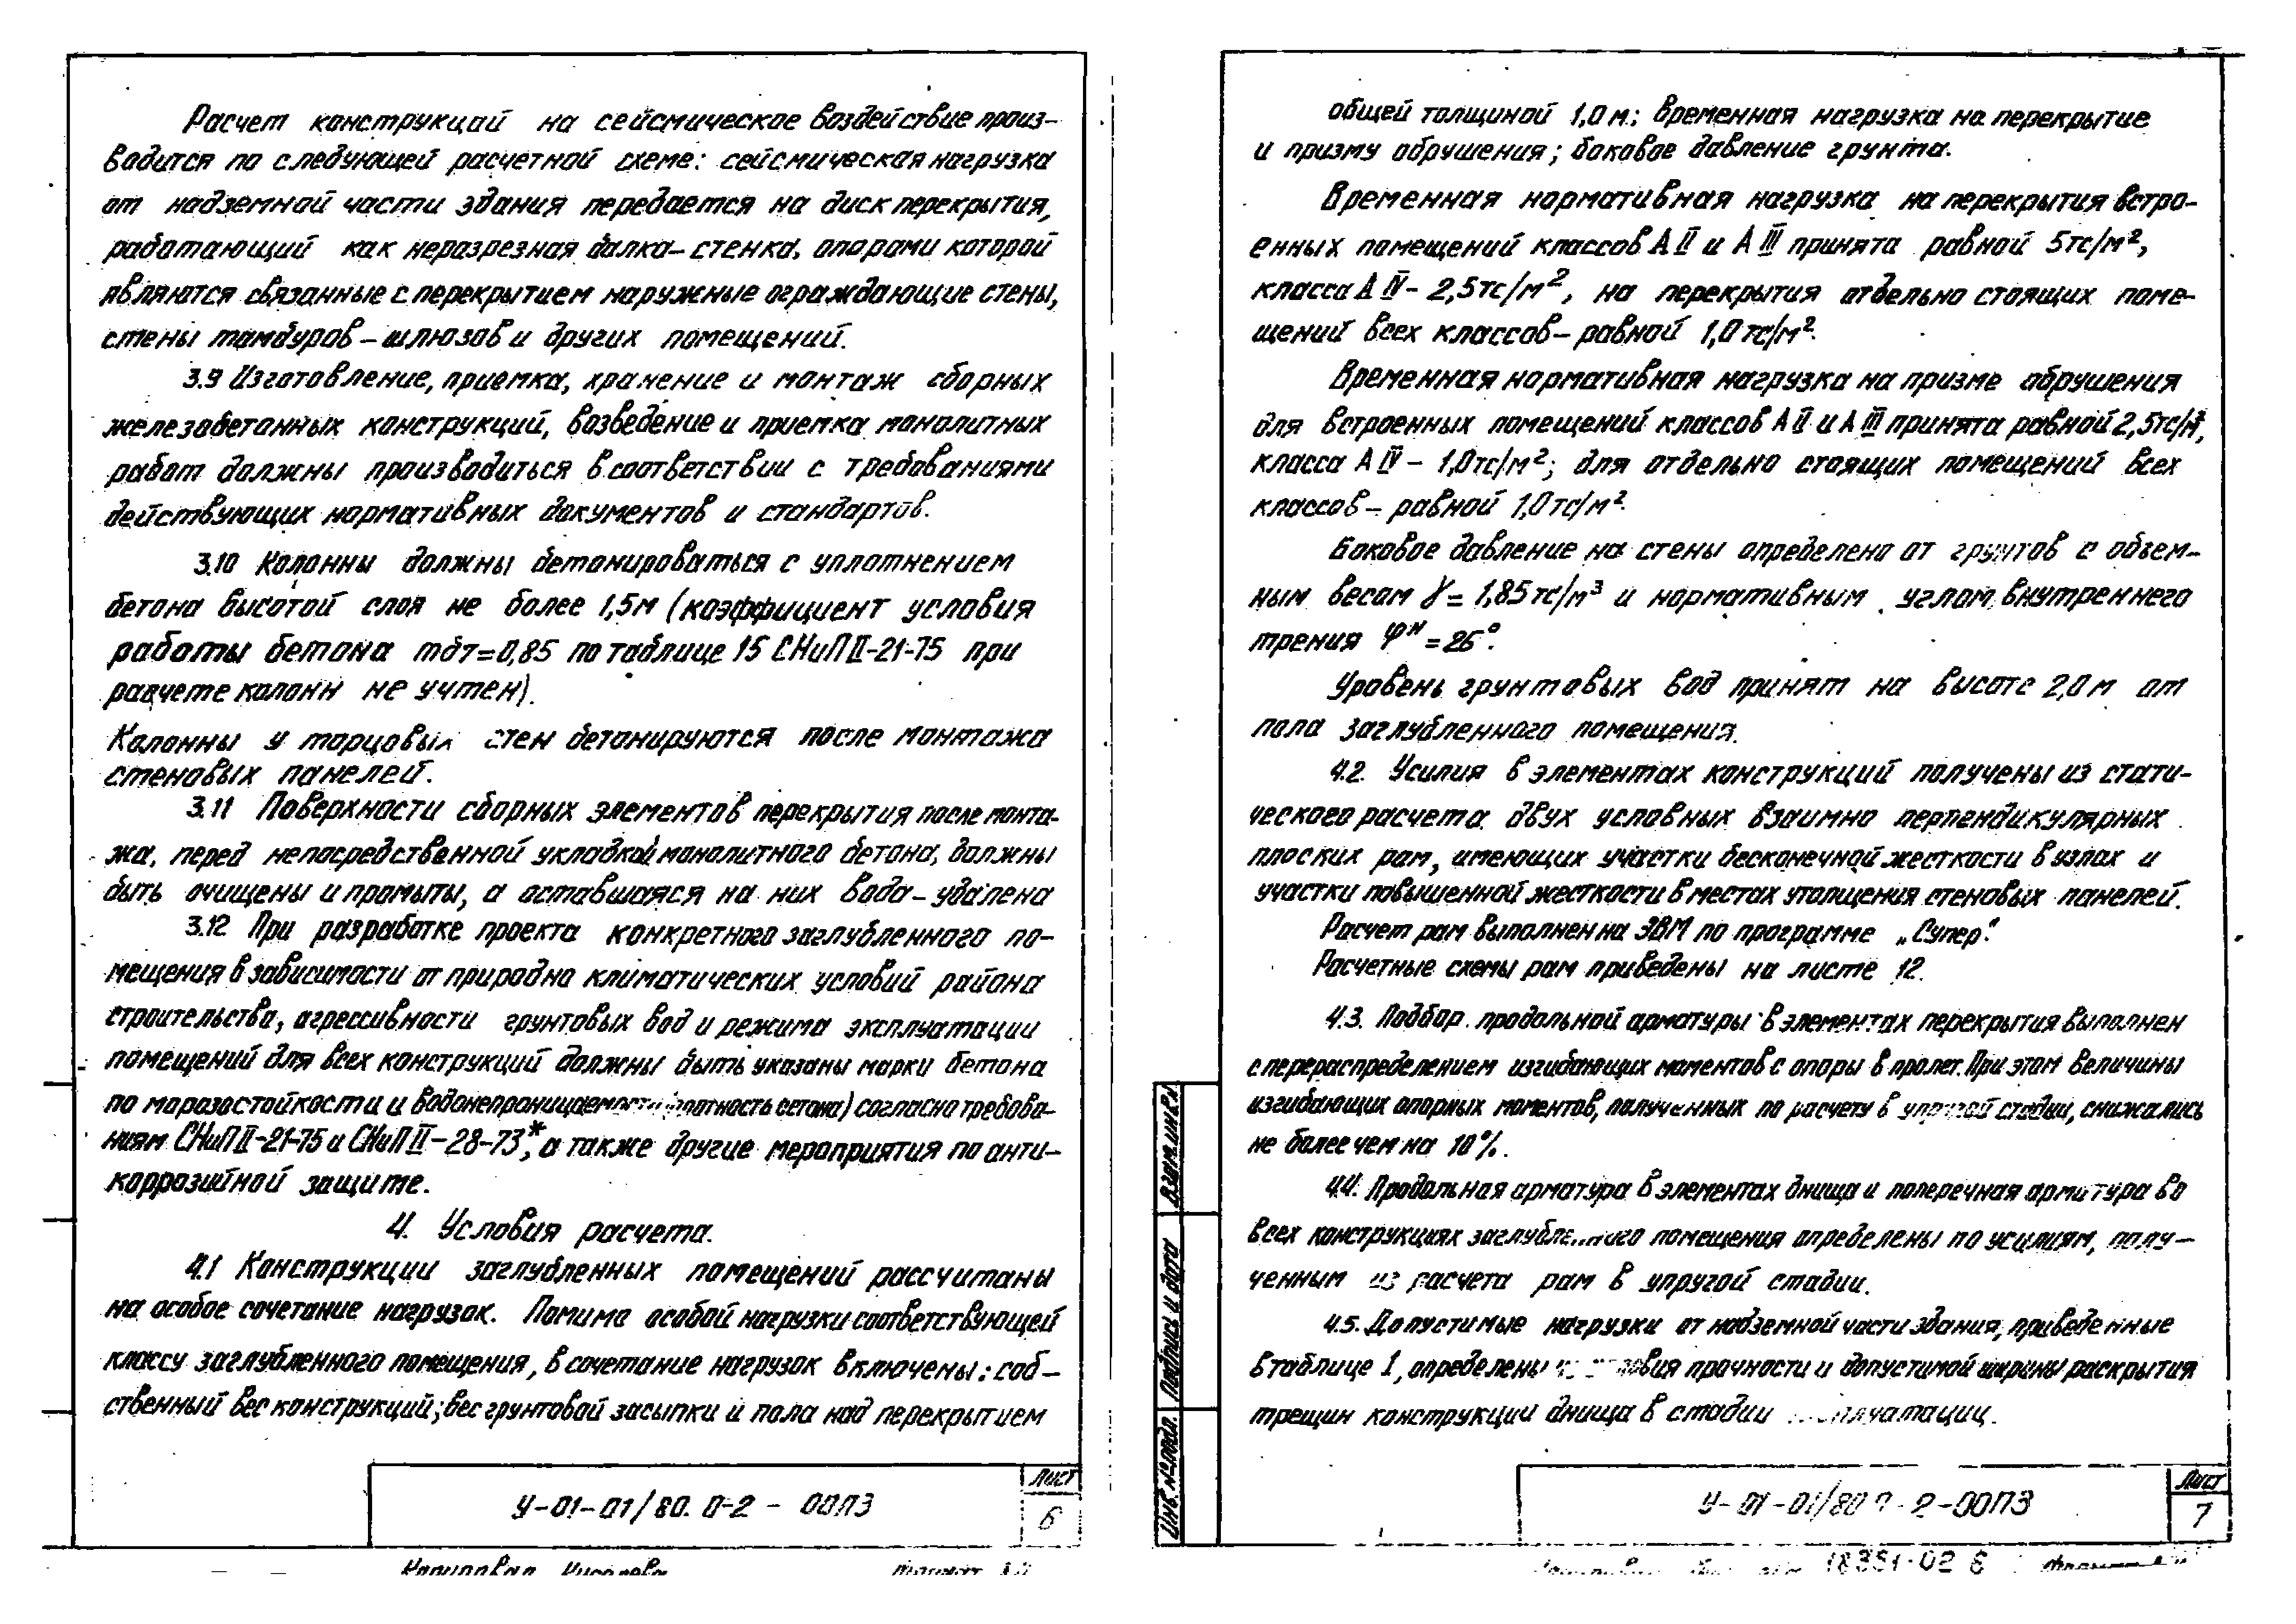 Расчет конструкций на сейсмическое воздействие произ-
водится по следующей расчетной схеме: сейсмическая нагрузка
от надземной части здания передается на диск перекрытия,
работающий как неразрезная балка-стенка, опорами которой
являются связанные с перекрытием наружные ограждающие стены,
стены тамбуров-шлюзов и других помещений.
3.9 Изготовление, приемка, хранение и монтаж сборных
железобетонных конструкций, возведение и приемка монолитных
работ должны производиться в соответствии с требованиями
действующих нормативных документов и стандартов.
3.10 Колонны должны бетонироваться с уплотнением
бетона высотой слоя не более 1,5м (коэффициент условия
работы бетона mбт=0,85 по таблице 15 СНиП II-21-75 при
расчете колонн не учтен).
Колонны у торцовых стен бетонируются после монтажа
стеновых панелей.
3.11 Поверхности сборных элементов перекрытия после монта-
жа, перед непосредственной укладкой монолитного бетона, должны
быть очищены и промыты, а оставшаяся на них вода-удалена
3.12 При разработке проекта конкретного заглубленного по-
мещения в зависимости от природно климатических условий района
строительства, агрессивности грунтовых вод и режима эксплуатации
помещений для всех конструкций должны быть указаны марки бетона
по морозостойкости и водонепроницаемости (плотность бетона) согласно требова-
ниям СНиП II-21-75 и СНиП II-28-73*, а также другие мероприятия по анти-
коррозийной защите.
4. Условия расчета.
4.1 Конструкции заглубленных помещений рассчитаны
на особое сочетание нагрузок. Помимо особой нагрузки соответствующей
классу заглубленного помещения, в сочетание нагрузок включены: соб-
ственный вес конструкций; вес грунтовой засыпки и пола над перекрытием
У-01-01/80. 0-2 - 00ПЗ
Лист
6
Копировал
общей толщиной 1,0 м; временная нагрузка на перекрытие
и призму обрушения; боковое давление грунта.
Временная нормативная нагрузка на перекрытия встро-
енных помещений классов А II и А III принята равной 5тс/м²,
класса А IV - 2,5тс/м², на перекрытия отдельно стоящих поме-
щений всех классов-равной 1,0тс/м².
Временная нормативная нагрузка на призме обрушения
для встроенных помещений классов А II и А III принята равной 2,5тс/м²,
класса А IV - 1,0тс/м²; для отдельно стоящих помещений всех
классов - равной 1,0тс/м².
Боковое давление на стены определено от грунтов с объем-
ным весом γ = 1,85тс/м³ и нормативным углом внутреннего
трения φн = 26°.
Уровень грунтовых вод принят на высоте 2,0м от
пола заглубленного помещения.
4.2. Усилия в элементах конструкций получены из стати-
ческого расчета двух условных взаимно перпендикулярных
плоских рам, имеющих участки бесконечной жесткости в узлах и
участки повышенной жесткости в местах утолщения стеновых панелей.
Расчет рам выполнен на ЭВМ по программе „Супер".
Расчетные схемы рам приведены на листе 12.
4.3. Подбор продольной арматуры в элементах перекрытия выполнен
с перераспределением изгибающих моментов с опоры в пролет. При этом величины
изгибающих опорных моментов, полученных по расчету в упругой стадии, снижались
не более чем на 10%.
4.4. Продольная арматура в элементах днища и поперечная арматура во
всех конструкциях заглубленного помещения определены по усилиям, полу-
ченным из расчета рам в упругой стадии.
4.5. Допустимые нагрузки от надземной части здания, приведенные
в таблице 1, определены условия прочности и допустимой ширины раскрытия
трещин конструкции днища в стадии эксплуатации.
Взам.инв.№
Подпись и дата
Инв.№подл.
У-01-01/80 0-2-00ПЗ
Лист
7
18351-02 6